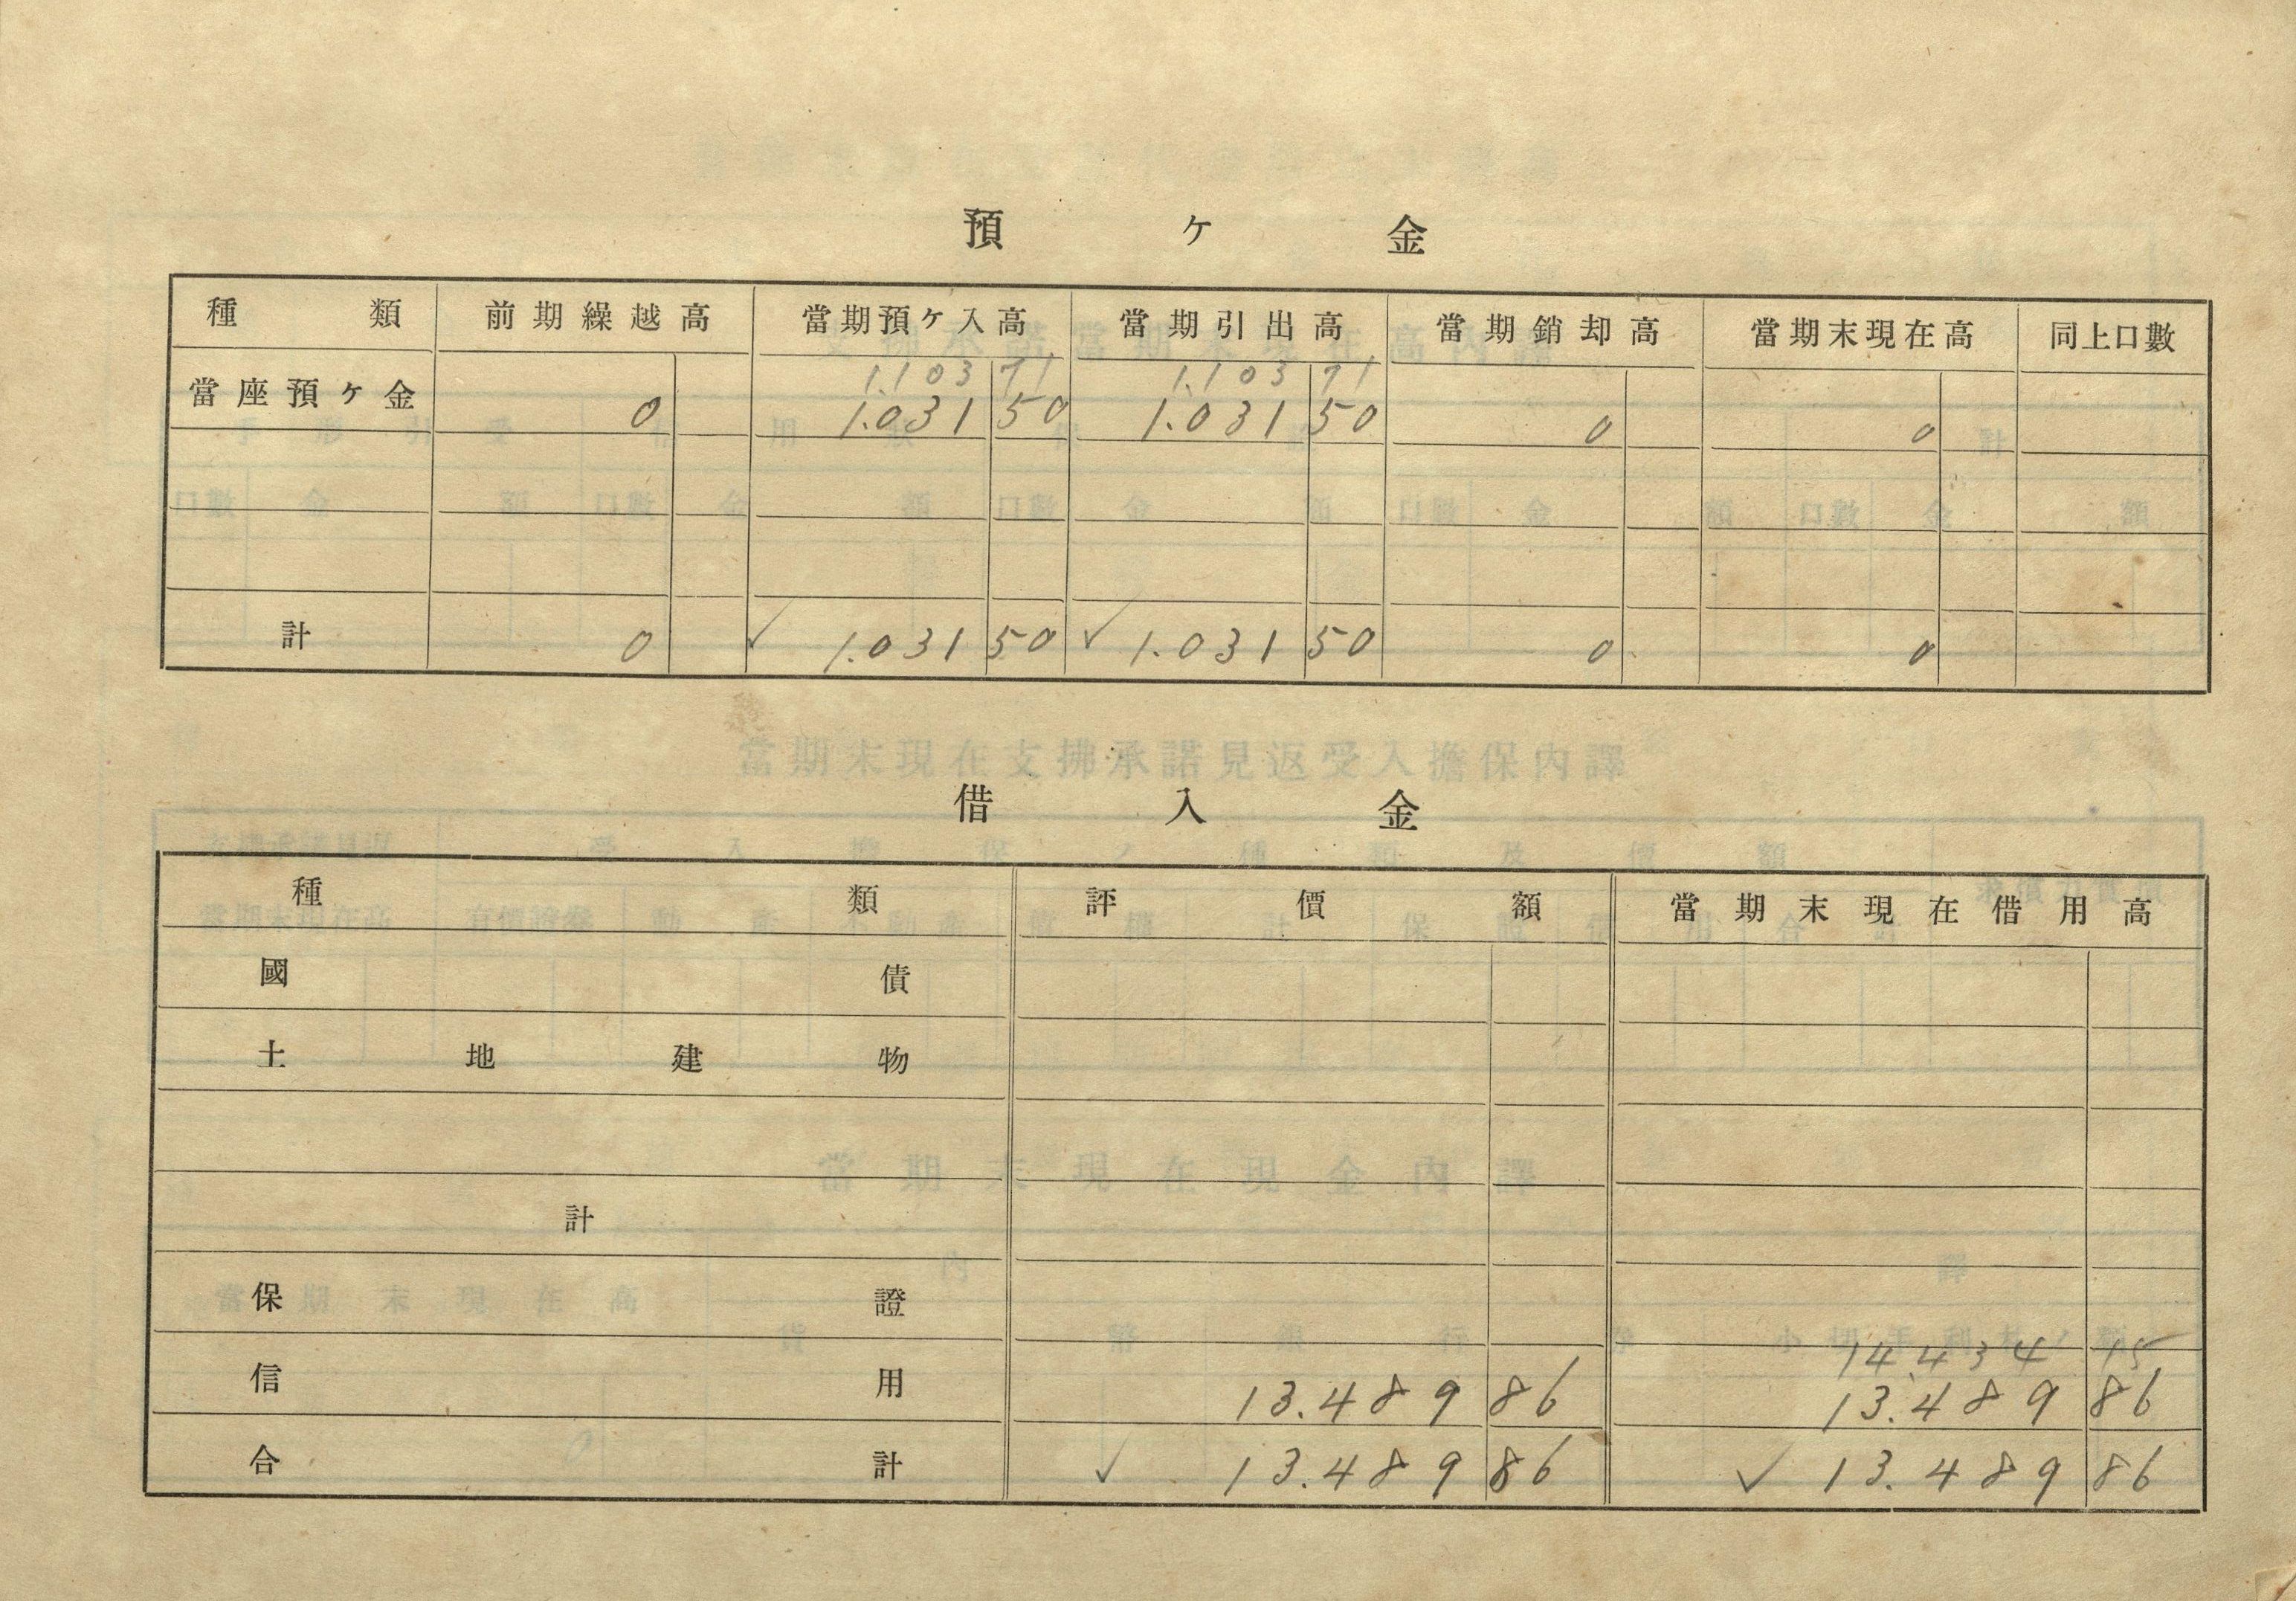 預ケ金
種類 前期繰越高 當期預ケ入高 當期引出高 當期銷却高 當期末現在高 同上口數
1.103 71 1.103 71
當座預ケ金 0 1.031 50 1.031 50 0 0
計 0 ✓ 1.031 50 ✓ 1.031 50 0 0
當期末現在支拂承諾見返受入擔保內譯
借入金
種類 評價額 當期末現在借用高
國債
土地建物
當期末現在現金內譯
計
保證
14.434 15
信用 13.489 86 13.489 86
合計 ✓ 13.489 86 ✓ 13.489 86